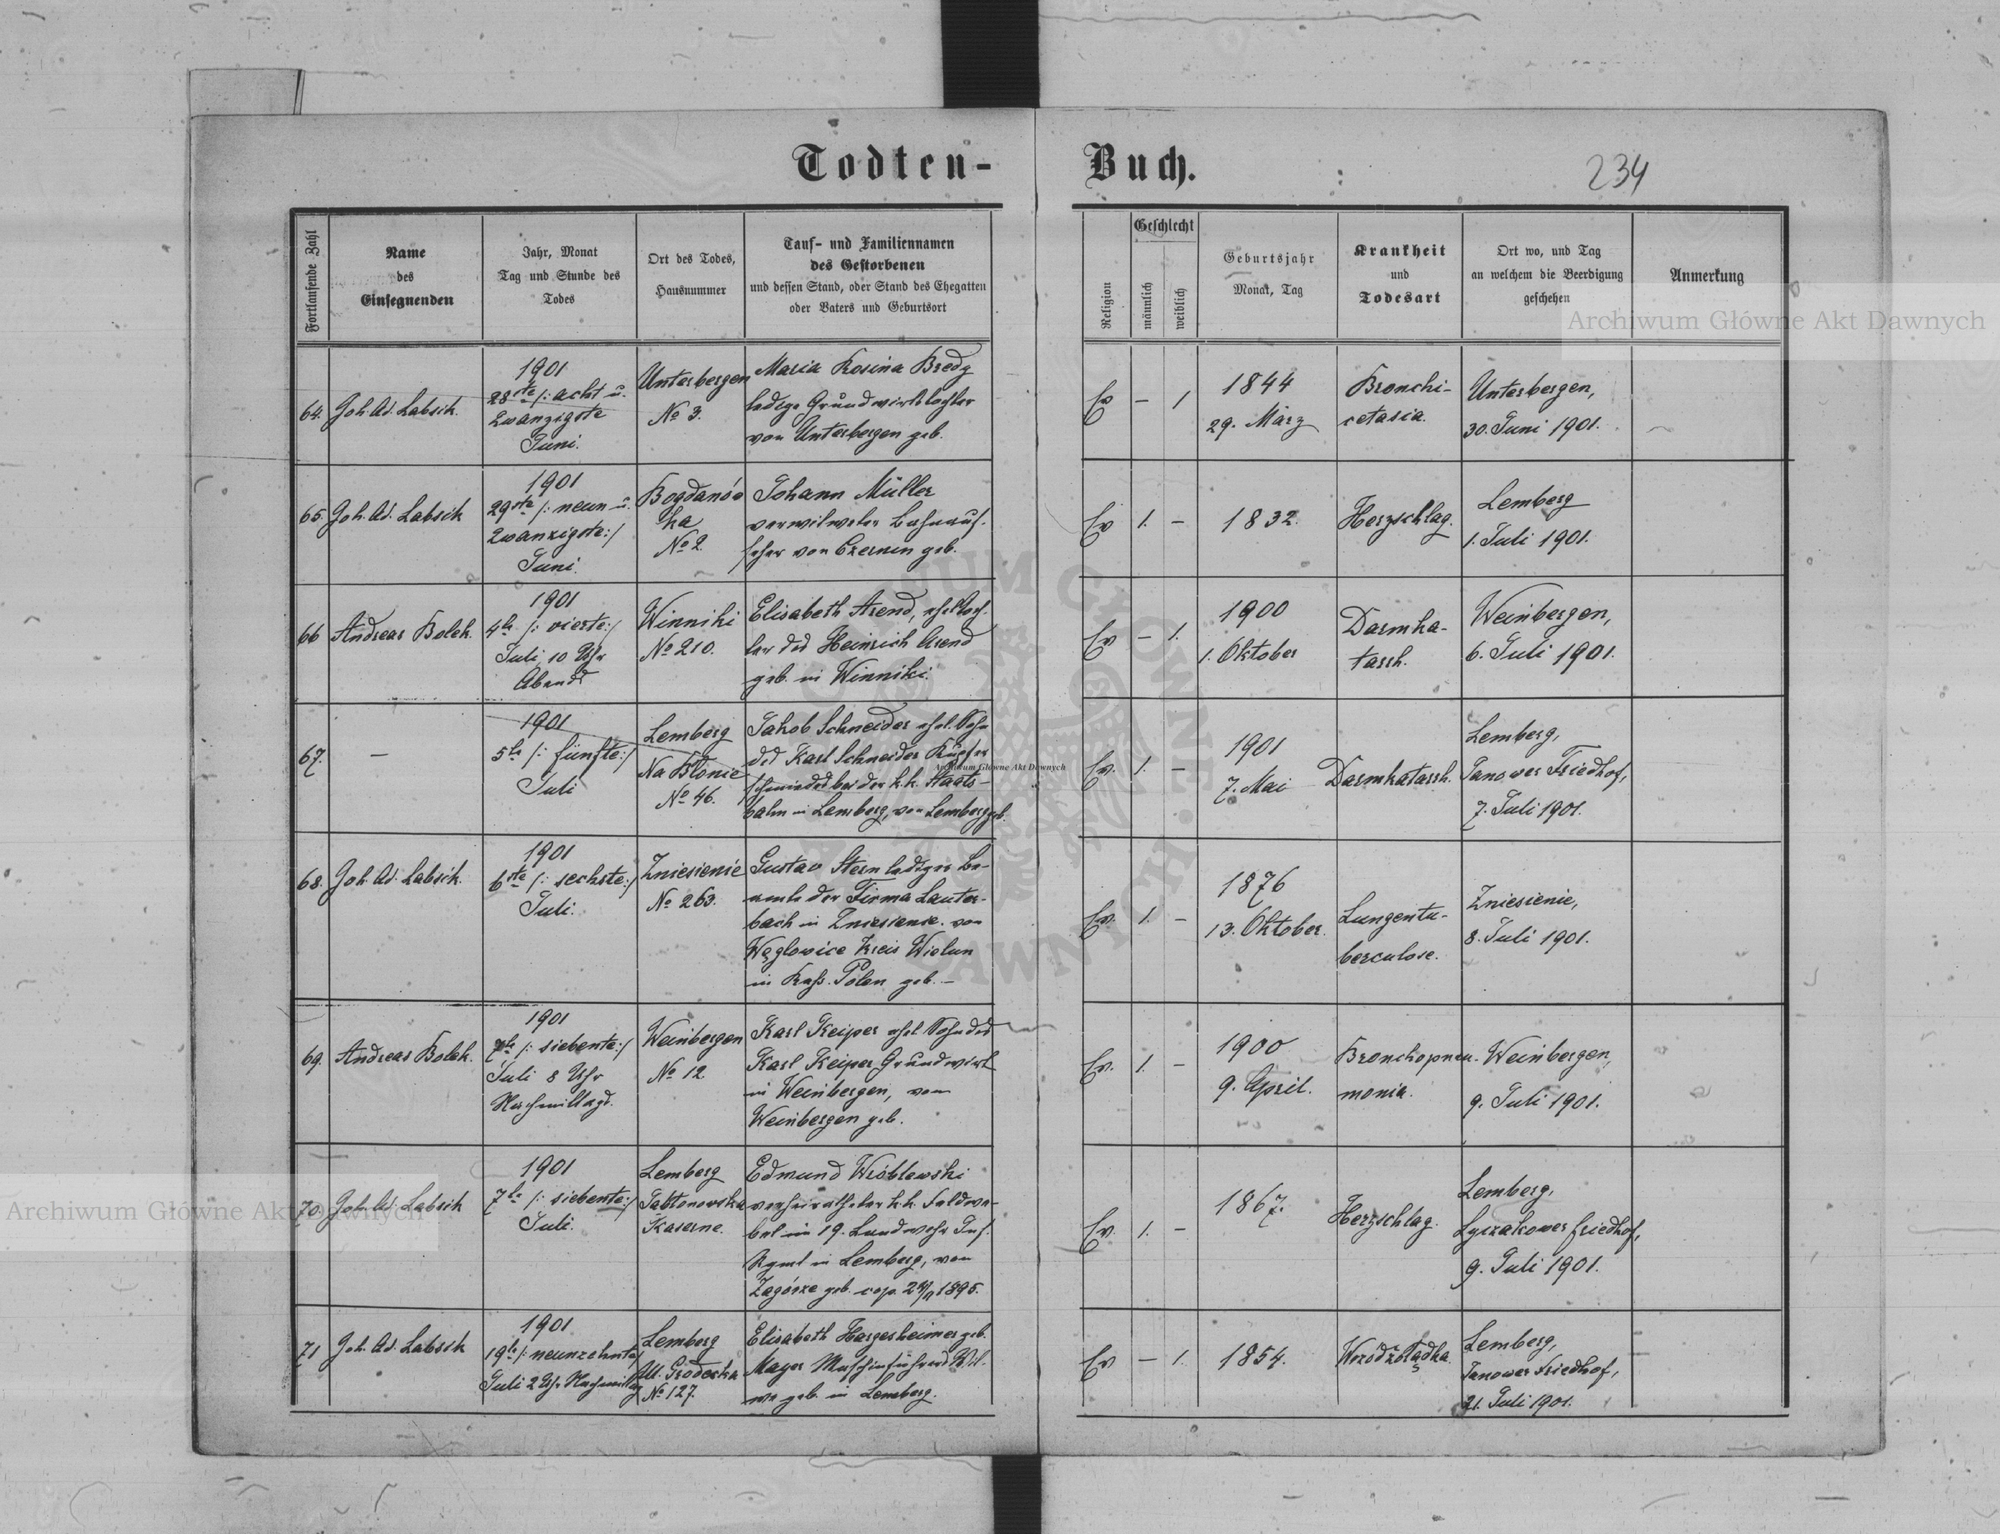 Todten-Buch.
234
Fortlaufende Zahl
Name
des
Einsegnenden
Jahr, Monat
Tag und Stunde des
Todes
Ort des Todes,
Hausnummer
Tauf- und Familiennamen
des Gestorbenen
und dessen Stand, oder Stand des Ehegatten
oder Vaters und Geburtsort
Religion
Geschlecht
männlich
weiblich
Geburtsjahr
Monat, Tag
Krankheit
und
Todesart
Ort wo, und Tag
an welchem die Beerdigung
geschehen
Anmerkung
Archiwum Główne Akt Dawnych
64.
Joh. Ad. Labsik.
1901
28ste /: acht u.
Zwanzigste
Juni.
Unterbergen
No 3.
Maria Rosina Bredy
ledige Grundwirtstochter
von Unterbergen geb.
Ev
–
1
1844
29. März
Bronchi-
cetasia.
Unterbergen,
30. Juni 1901.
65.
Joh. Ad. Labsik
1901
29ste /: neun u.
Zwanzigste :/
Juni.
Bogdanów
ka
No 2.
Johann Müller
verwitweter Bahnauf-
seher von Czernin geb.
Ev
1.
–
1832.
Herzschlag.
Lemberg
1. Juli 1901.
66
Andreas Bolek.
1901
4te /: vierte :/
Juli 10 Uhr
Abends
Winniki
No 210.
Elisabeth Arend, ehel. Toch-
ter des Heinrich Arend
geb. in Winniki.
Ev
–
1.
1900
1. Oktober
Darmka-
tarrh.
Weinbergen,
6. Juli 1901.
67.
–
1901
5te /: fünfte :/
Juli
Lemberg
Na Błonie
No 46.
Jakob Schneider ehel. Sohn
des Karl Schneider Kupfer
schmiedes bei der k. k. Staats-
bahn in Lemberg, von Lemberg geb.
Ev.
1.
–
1901
7. Mai
Darmkatarrh.
Lemberg,
Janower Friedhof,
7. Juli 1901.
Archiwum Główne Akt Dawnych
68.
Joh. Ad. Labsik.
1901
6ste /: sechste :/
Juli.
Zniesienie
No 263.
Gustav Stern lediger Be-
amte der Firma Lauter-
bach in Zniesienie. von
Węglowice Kreis Wielun
in Russ. Polen geb. –
Ev.
1.
–
1876
13. Oktober.
Lungentu-
berculose.
Zniesienie,
8. Juli 1901.
69.
Andreas Bolek.
1901
7te /: siebente :/
Juli 8 Uhr
Nachmittags.
Weinbergen
No 12
Karl Keiper ehel. Sohn des
Karl Keiper Grundwirt
in Weinbergen, von
Weinbergen geb.
Ev.
1.
–
1900
9. April.
Bronchopneu-
monia.
Weinbergen,
9. Juli 1901.
70.
Joh. Ad. Labsik
1901
7te /: siebente :/
Juli.
Lemberg
Jabłonowska
Kaserne.
Edmund Wróblewski
verheiratheter k. k. Feldwe-
bel im 19. Landwehr Inf.
Rgmt in Lemberg, von
Zagórze geb. cop. 1895.
Ev.
1.
–
1867.
Herzschlag.
Lemberg,
Lyczakower Friedhof,
9. Juli 1901.
Archiwum Główne Akt Dawnych
71
Joh. Ad. Labsik
1901
19te /: neunzehnte :/
Juli 2 Uhr Nachmittag
Lemberg
Ul. Grodecka
No 127.
Elisabeth Hargesheimer geb.
Mayer Maschinführers Wit-
we geb. in Lemberg.
Ev
–
1.
1854.
Wrzód żołądka
Lemberg,
Janower Friedhof,
21. Juli 1901.